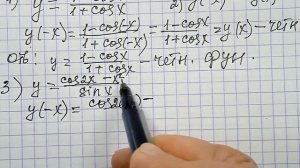 1)
2) y
y(-x) = \frac{1-cos(-x)}{1+cos(-x)} = \frac{1-cosx}{1+cosx} = y(x) - чётн
Отв: y = \frac{1-cosx}{1+cosx} - чётн. фун.
3) y = \frac{cos2x - x²}{sinx}
y(-x) = cos2(-x) -